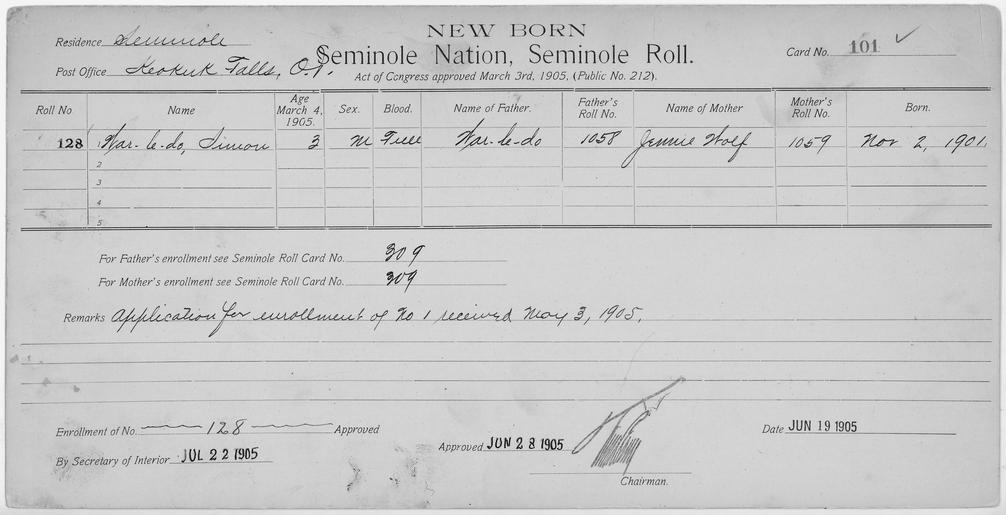 NEW BORN
Residence Seminole
Seminole Nation, Seminole Roll.
Card No. 101 ✓
Post Office Keokuk Falls, O.T.
Act of Congress approved March 3rd, 1905, (Public No. 212).
Roll No Name Age March 4, 1905. Sex. Blood. Name of Father. Father's Roll No. Name of Mother Mother's Roll No. Born.
128 1 War-le-do, Simon 3 M Full War-le-do 1058 Jennie Wolf 1059 Nov 2, 1901.
2
3
4
5
For Father's enrollment see Seminole Roll Card No. 309
For Mother's enrollment see Seminole Roll Card No. 309
Remarks Application for enrollment of No 1 received May 3, 1905.
Enrollment of No. 128 Approved
Approved JUN 28 1905
Date JUN 19 1905
By Secretary of Interior JUL 22 1905
Chairman.